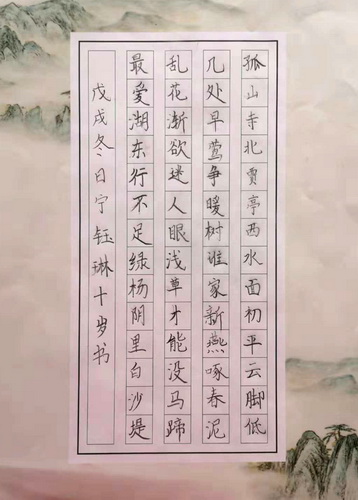 孤山寺北贾亭西水面初平云脚低
几处早莺争暖树谁家新燕啄春泥
乱花渐欲迷人眼浅草才能没马蹄
最爱湖东行不足绿杨阴里白沙堤
戊戌冬日宁钰琳十岁书